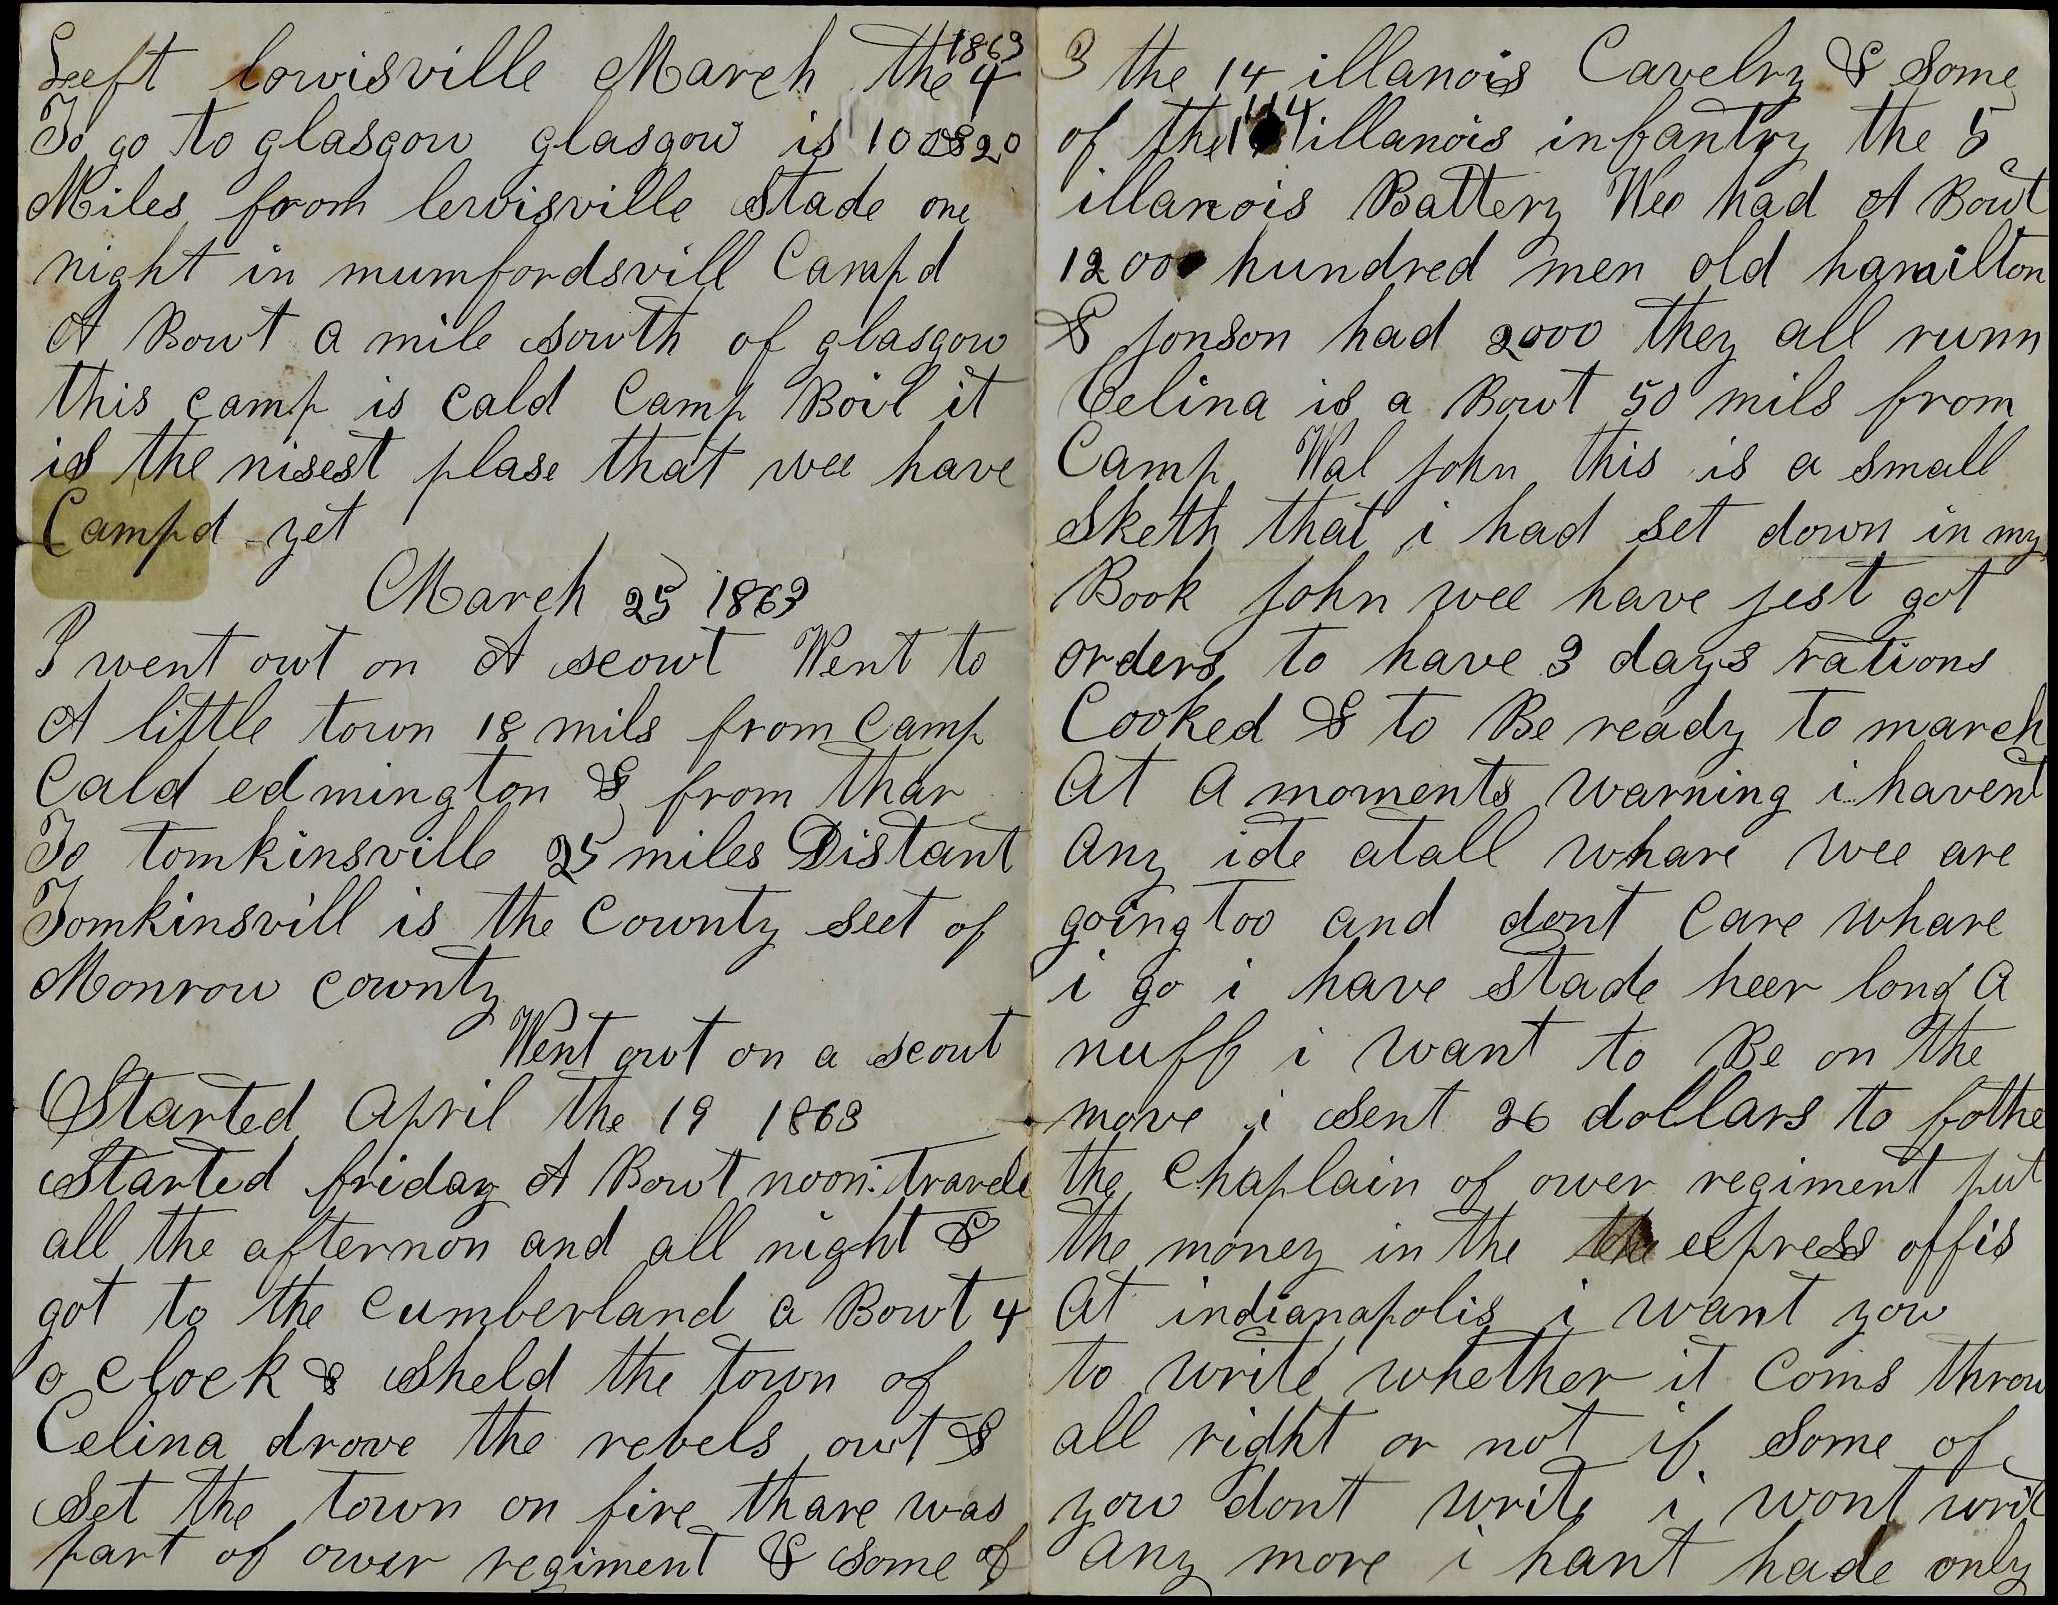 Leeft lowisville March the 4 1863
To go to glasgow glasgow is 100 & 20
Miles from lewisville stade one
night in mumfordsvill Campd
A Bowt a mile sowth of glasgow
this camp is cald Camp Boil it
is the nisest plase that wee have
Campd yet
March 25 1863
I went owt on A scowt Went to
A little town 18 mils from Camp
Cald edmington & from thar
To tomkinsville 25 miles Distant
Tomkinsvill is the County seet of
Monrow county
Went owt on a scout
Started April the 19 1863
Started friday A Bowt noon travele
all the afternon and all night &
got to the Cumberland a Bowt 4
o clock & sheld the town of
Celina drove the rebels owt &
set the town on fire thare was
part of ower regiment & some of
3 the 14 illanois Cavelry & some
of the 114 illanois infantry the 5
illanois Battery Wee had A Bowt
1200 hundred men old hamilton
& jonson had 2000 they all runn
Celina is a Bowt 50 mils from
Camp Wal john this is a small
sketh that i had set down in my
Book john wee have jest got
orders to have 3 days rations
Cooked & to Be ready to march
At A moments warning i havent
any ide atall whare wee are
going too and dont Care whare
i go i have stade heer long A
nuff i want to Be on the
move i sent 26 dollars to fothe
the Chaplain of ower regiment put
the money in the the express offis
At indianapolis i want yow
to write whether it Coms throw
all right or not if some of
yow dont write i wont writ
any more i hant hade only